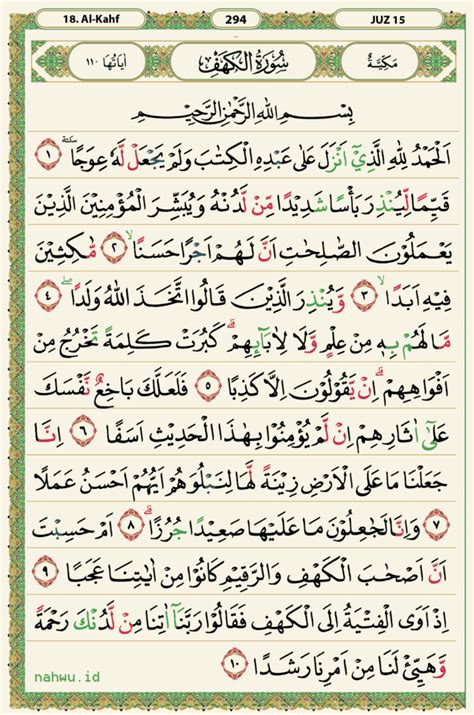 18. Al-Kahf 294 JUZ 15
مَكِّيَّةٌ سُوْرَةُ الْكَهْفِ اٰيَاتُهَا ١١٠
بِسْمِ اللّٰهِ الرَّحْمٰنِ الرَّحِيْمِ
اَلْحَمْدُ لِلّٰهِ الَّذِيْٓ اَنْزَلَ عَلٰى عَبْدِهِ الْكِتٰبَ وَلَمْ يَجْعَلْ لَّهٗ عِوَجًا ۜ ١
قَيِّمًا لِّيُنْذِرَ بَأْسًا شَدِيْدًا مِّنْ لَّدُنْهُ وَيُبَشِّرَ الْمُؤْمِنِيْنَ الَّذِيْنَ
يَعْمَلُوْنَ الصّٰلِحٰتِ اَنَّ لَهُمْ اَجْرًا حَسَنًاۙ ٢ مَّاكِثِيْنَ
فِيْهِ اَبَدًاۙ ٣ وَّيُنْذِرَ الَّذِيْنَ قَالُوا اتَّخَذَ اللّٰهُ وَلَدًاۖ ٤
مَا لَهُمْ بِهٖ مِنْ عِلْمٍ وَّلَا لِاٰبَاۤىِٕهِمْۗ كَبُرَتْ كَلِمَةً تَخْرُجُ مِنْ
اَفْوَاهِهِمْۗ اِنْ يَّقُوْلُوْنَ اِلَّا كَذِبًا ٥ فَلَعَلَّكَ بَاخِعٌ نَّفْسَكَ
عَلٰٓى اٰثَارِهِمْ اِنْ لَّمْ يُؤْمِنُوْا بِهٰذَا الْحَدِيْثِ اَسَفًا ٦ اِنَّا
جَعَلْنَا مَا عَلَى الْاَرْضِ زِيْنَةً لَّهَا لِنَبْلُوَهُمْ اَيُّهُمْ اَحْسَنُ عَمَلًا
٧ وَاِنَّا لَجٰعِلُوْنَ مَا عَلَيْهَا صَعِيْدًا جُرُزًاۗ ٨ اَمْ حَسِبْتَ
اَنَّ اَصْحٰبَ الْكَهْفِ وَالرَّقِيْمِ كَانُوْا مِنْ اٰيٰتِنَا عَجَبًا ٩
اِذْ اَوَى الْفِتْيَةُ اِلَى الْكَهْفِ فَقَالُوْا رَبَّنَآ اٰتِنَا مِنْ لَّدُنْكَ رَحْمَةً
وَّهَيِّئْ لَنَا مِنْ اَمْرِنَا رَشَدًا ١٠
nahwu.id